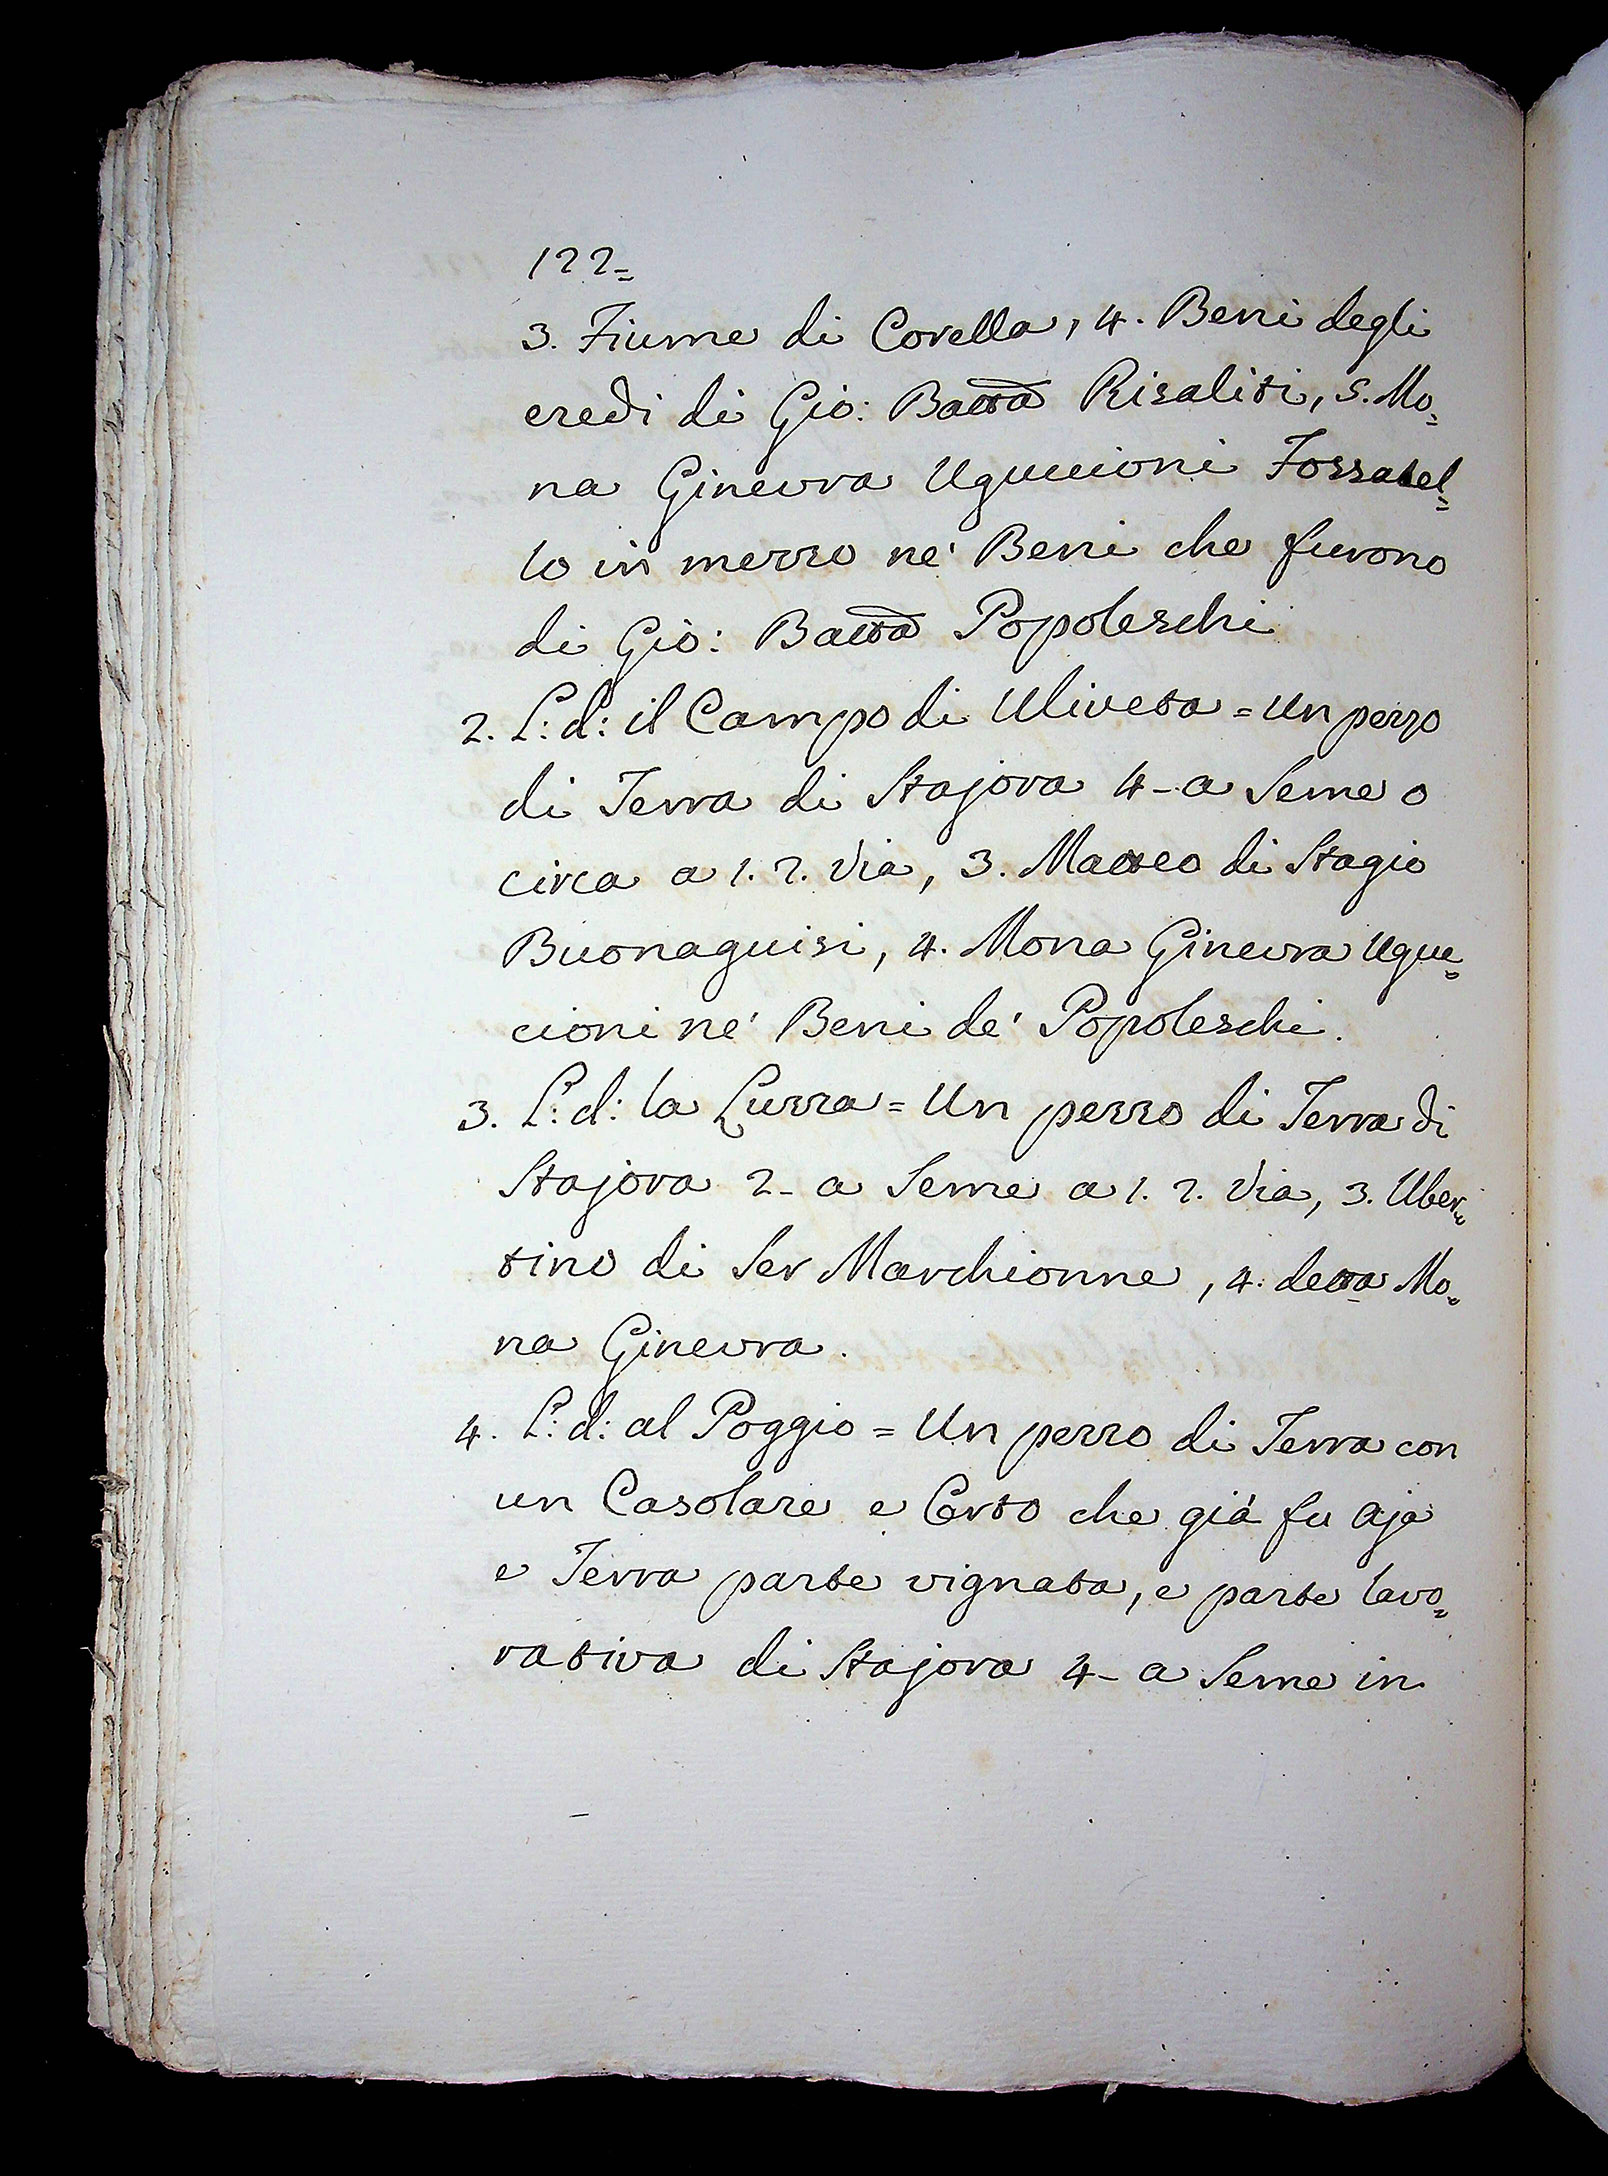 122=
3. Fiume di Corella, 4. Beni degli
eredi di Gio: Batta Risaliti, 5. Mo=
na Ginevra Uguccioni Fossatel=
lo in mezzo ne' Beni che furono
di Gio: Batta Popoleschi
2. L: d: il Campo di Uliveta = Un pezzo
di Terra di Stajora 4- a Seme o
circa a 1. 2. Via, 3. Matteo di Stagio
Buonaguisi, 4. Mona Ginevra Uguc=
cioni ne' Beni de' Popoleschi.
3. L: d: la Luzza = Un pezzo di Terra di
Stajora 2- a Seme a 1. 2. Via, 3. Uber=
tino di Ser Marchionne, 4. detta Mo=
na Ginevra.
4. L: d: al Poggio = Un pezzo di Terra con
un Casolare e Orto che già fu Aja
e Terra parte vignata, e parte lavo=
rativa di Stajora 4- a Seme in